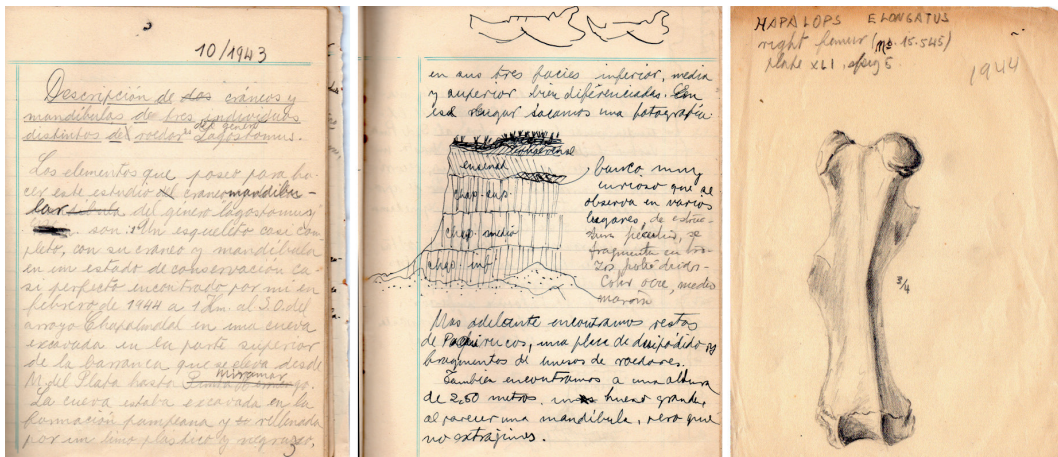 10/1943
Descripción de dos cráneos y
mandíbulas de tres individuos
distintos de roedores del género Lagostomus.
Los elementos que poseo para ha-
cer este estudio del craneo mandibu-
lar del genero lagostomus
son: 1º Un esqueleto casi com
pleto, con su cráneo y mandíbula
en un estado de conservación ca
si perfecto encontrado por mi en
febrero de 1944 a 1 Km. al S.O. del
arroyo Chapalmalal en una cueva
excavada en la parte superior
de la barranca que se eleva desde
M. del Plata hasta Miramar
La cueva estaba excavada en la
formación pampeana y rellenada
por un limo plastico y negruzco,
en sus tres facies inferior, media
y superior bien diferenciadas. En
ese lugar sacamos una fotografía
ensenad
chap. sup
chap. medio
chap. inf
banco muy
curioso que se
observa en varios
lugares, de estruc-
tura peculiar, se
fragmenta en tro-
zos poliedricos-
Color ocre, medio
marrón
Mas adelante encontramos restos
de Pachirucos, una placa de dasipodido y
fragmentos de huesos de roedores.
Tambien encontramos a una altura
de 2,50 metros, un hueso grande,
al parecer una mandíbula, pero que
no extrajimos.
HAPALOPS ELONGATUS
right femur (No. 15.545)
plate XLI, fig 5
1944
3/4